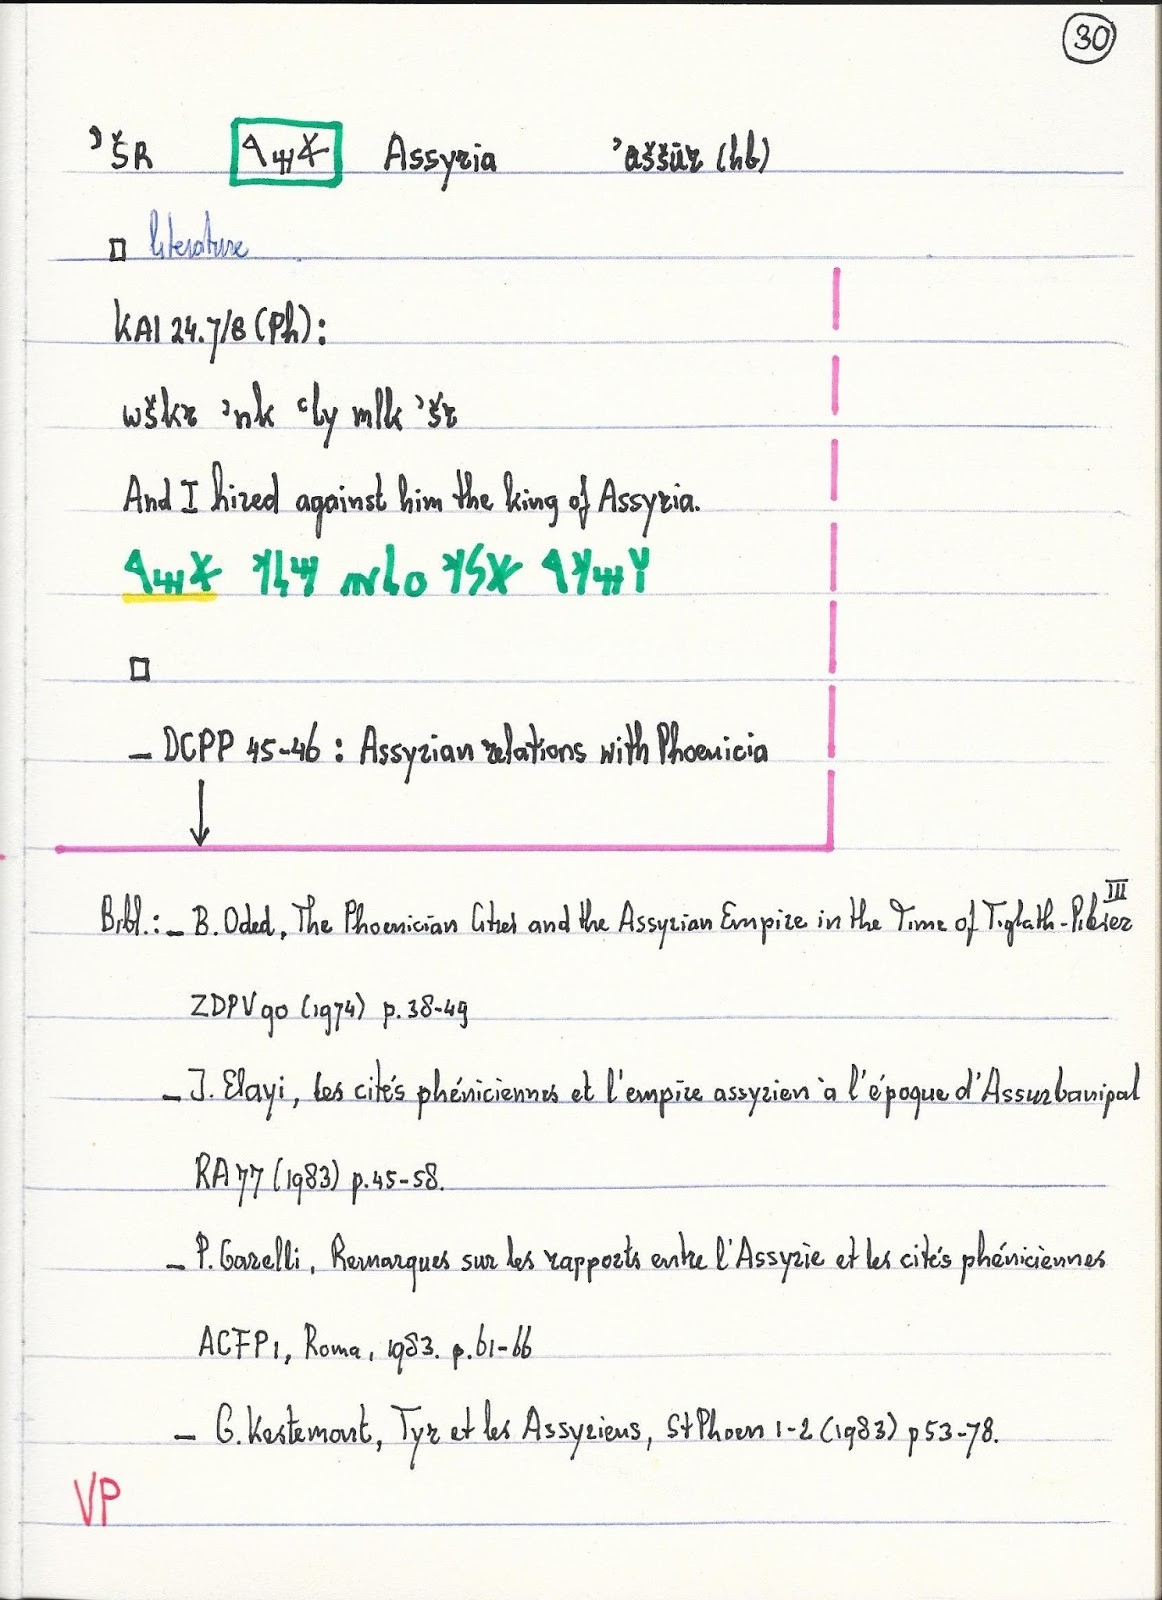 30
ʾŠR 𐤀𐤔𐤓 Assyria ʾaššūr (hb)
literature
KAI 24.7/8 (Ph):
wškr ʾnk ʿly mlk ʾšr
And I hired against him the king of Assyria.
𐤅𐤔𐤊𐤓 𐤀𐤍𐤊 𐤏𐤋𐤉 𐤌𐤋𐤊 𐤀𐤔𐤓
– DCPP 45-46 : Assyrian relations with Phoenicia
Bibl.: – B. Oded, The Phoenician Cities and the Assyrian Empire in the Time of Tiglath-Pileser III
ZDPV 90 (1974) p. 38-49
– J. Elayi, les cités phéniciennes et l'empire assyrien à l'époque d'Assurbanipal
RA 77 (1983) p. 45-58.
– P. Garelli, Remarques sur les rapports entre l'Assyrie et les cités phéniciennes
ACFP 1, Roma, 1983. p. 61-66
– G. Kestemont, Tyr et les Assyriens, StPhoen 1-2 (1983) p 53-78.
VP